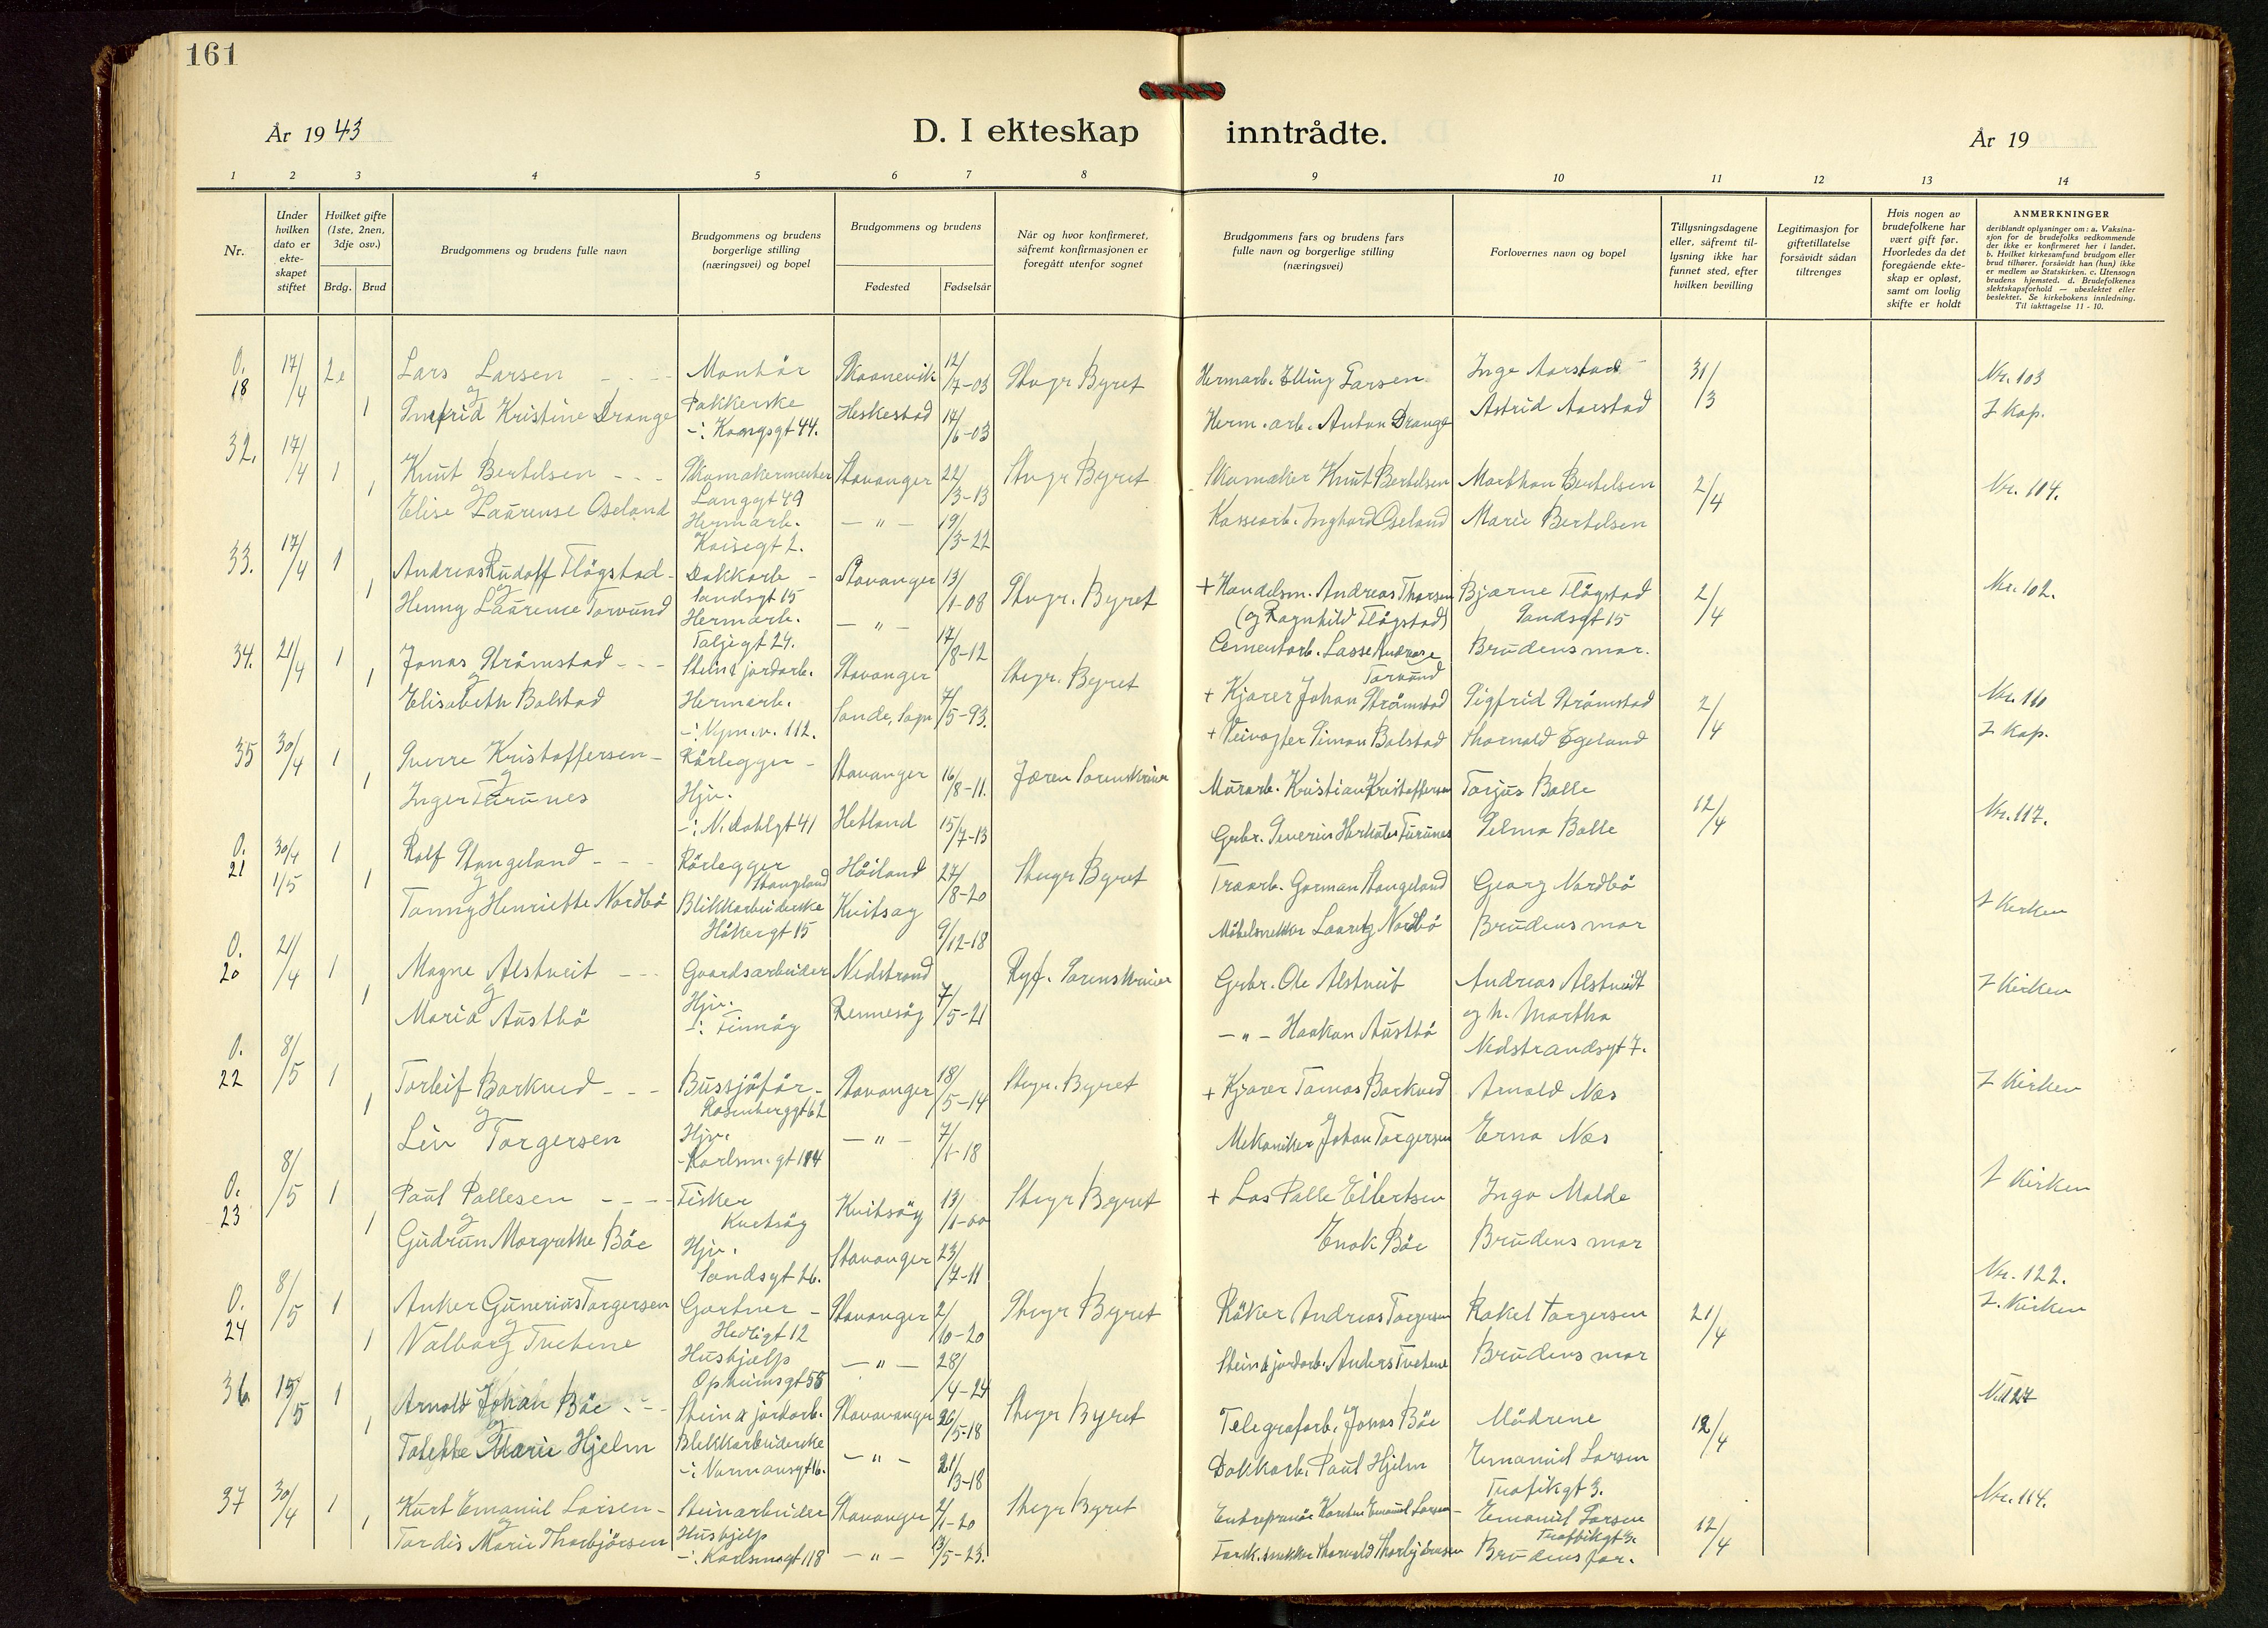 161
År 1943
D. I ekteskap inntrådte.
År 19
1 2 3 4 5 6 7 8 9 10 11 12 13 14
Nr.
Under hvilken dato er ekte-skapet stiftet
Hvilket gifte (1ste, 2nen, 3dje osv.)
Brdg. Brud
Brudgommens og brudens fulle navn
Brudgommens og brudens borgerlige stilling (næringsvei) og bopel
Brudgommens og brudens
Fødested
Fødselsår
Når og hvor konfirmeret, såfremt konfirmasjonen er foregått utenfor sognet
Brudgommens fars og brudens fars fulle navn og borgerlige stilling (næringsvei)
Forlovernes navn og bopel
Tillysningsdagene eller, såfremt til-lysning ikke har funnet sted, efter hvilken bevilling
Legitimasjon for giftetillatelse forsåvidt sådan tiltrenges
Hvis nogen av brudefolkene har vært gift før. Hvorledes da det foregående ekte-skap er opløst, samt om lovlig skifte er holdt
ANMERKNINGER
deriblandt oplysninger om: a. Vaksina-sjon for de brudefolks vedkommende der ikke er konfirmeret her i landet. b. Hvilket kirkesamfund brudgom eller brud tilhører, forsåvidt han (hun) ikke er medlem av Statskirken. c. Utensogn brudens hjemsted. d. Brudefolkenes slektskapsforhold — ubeslektet eller beslektet. Se kirkebokens innledning. Til iakttagelse 11 - 10.
O. 18 17/4 2e Lars Larsen - - - Montör Skaanevik 12/7-03 Stvgr Byret Hermarb. Elling Larsen Inge Aarstad 31/3 Nr. 103
og
1 Ingfrid Kristine Drange Pakkerske Heskestad 17/6-03 Herm. arb. Anton Drange Astrid Aarstad I Kap.
-: Kongsgt 44.
32. 17/4 1 Knut Bertelsen - - - Skomakermester Stavanger 22/3-13 Stvgr Byret Skomaker Knut Bertelsen Marthon Bertelsen 2/4 Nr. 114.
og Langgt 49
1 Elise Laurense Oseland Hermarb. - " - 19/3-22 Kassearb. Inghard Oseland Marie Bertelsen
Kaisegt 2.
33. 17/4 1 Andreas Rudolf Flögstad - Dokkarb - Stavanger 13/1-08 Stvgr. Byret + Handelsm. Andreas Thorsen Bjarne Flögstad 2/4 Nr. 102.
og Sandsgt 15 (og Ragnhild Flögstad) Sandsgt 15
1 Henny Laurense Torvund Hermarb. - " - 17/8-12 Cementarb. Lasse Andreas Torvund Brudens mor.
Taljegt 24.
34. 21/4 1 Jonas Strömstad - - - Stein & jordarb. Stavanger Stvgr. Byret + Kjörer Johan Strömstad Sigfrid Strömstad 2/4 Nr. 110
og
1 Elisabeth Bolstad Hermarb. Sande, Sogn 7/5-93. + Veivogter Simon Bolstad Thorvald Egeland I Kap.
-: Nym.v. 112.
35 30/4 1 Sverre Kristoffersen - Rörlegger - Stavanger 16/8-11. Jæren Sorenskriver Murarb. Kristian Kristoffersen Torjus Balle 12/4 Nr. 117.
og
1 Inger Turunes Hjv. Hetland 15/7-13 Grbr. Severin Turunes Selma Balle
-: N. Dahlgt 41
O. 21 30/4 1/5 1 Rolf Stangeland - - Rörlegger Stangeland Höiland 27/8-20 Stvgr Byret Træarb. Gorman Stangeland Georg Nordbö I Kirken
og
1 Tonny Henriette Nordbö Blikkarbeiderske Kvitsöy 9/12-18 Möbelsnekker Lauritz Nordbö Brudens mor
Hökergt 15
O. 20 21/4 1 Magne Alstveit - - - Gaardsarbeider Nedstrand Ryf. Sorenskriver Grbr. Ole Alstveit Andreas Alstveit I Kirken
og og h. Martha
1 Maria Austbö Hjv. Rennesöy 7/5-21 - " - Haakon Austbö Nedstrandsgt 7.
-: Finnöy
O. 22 8/5 1 Torleif Borkved - - - Bussjåför - Stavanger 18/5-14 Stvgr. Byret + Kjörer Tomas Borkved Arnold Næs I Kirken
og Rosenberggt 62
1 Liv Torgersen Hjv. - " - 7/1-18 Mekaniker Johan Torgersen Erna Næs
-Karlsm.gt 114
O. 23 8/5 1 Paul Pallesen - - - - Fisker Kvitsöy 13/1-00 Stvgr Byret + Los Palle Eilertsen Inga Malde I Kirken
og Kvitsöy
1 Gudrun Margrethe Böe Hjv. Stavanger 23/7-11 Enok Böe Brudens mor
Sandsgt 26.
O. 24 8/5 1 Anker Gunerius Torgersen Gartner - Stavanger 2/10-20 Stvgr Byret Röker Andreas Torgersen Rakel Torgersen 21/4 Nr. 122.
og Hedligt 12 I. Kirken
1 Valborg Tvetene Hushjelp - " - 28/4-24 Stein & jordarb. Anders Tvetene Brudens mor
Opheimsgt 55
36. 15/5 1 Arnold Johan Böe - - - Stein & jordarb. Stavanger 26/5-18 Stvgr Byret Telegrafarb. Jonas Böe Mödrene 12/4 Nr 127
og
1 Tolette Marie Hjelm Blikkarbeiderske - " - 21/3-18 Dokkarb. Paul Hjelm Emanuel Larsen
-: Normansgt 16. Trafikgt 3.
37 30/4 1 Kurt Emanuel Larsen - Steinarbeider Stavanger 2/1-20 Stvgr Byret Entreprenör Karsten Emanuel Larsen - Emanuel Larsen 12/4 Nr. 114.
og Trafikkgt 3.
1 Tordis Marie Thorbjörnsen Hushjelp - " - 13/5-23. snekker Thorvald Thorbjörnsen Brudens far.
-: Karlsm.gt 118